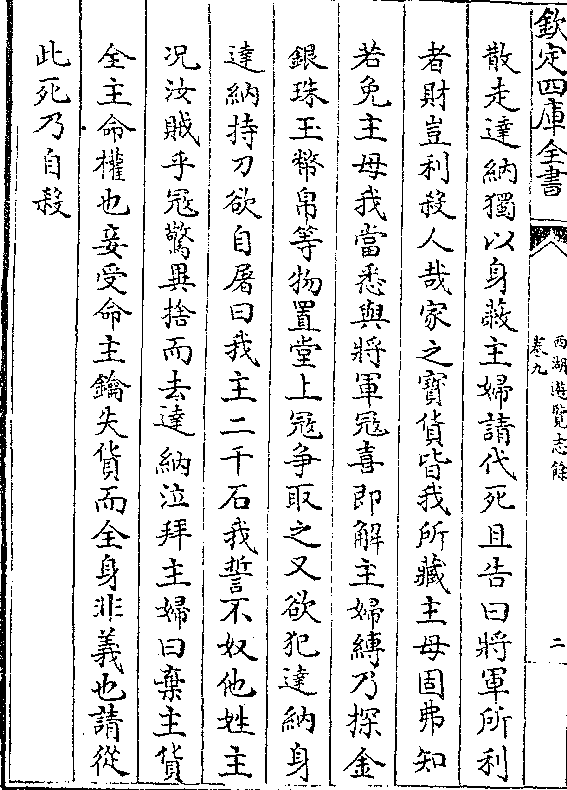 欽定四庫全書
西湖遊覽志餘
卷九
二
散走達納獨以身蔽主婦請代死且告曰將軍所利
者財豈利殺人哉家之寶貨皆我所藏主母固弗知
若免主母我當悉與將軍冦喜即解主婦縛乃探金
銀珠玉幣帛等物置堂上冦争取之又欲犯達納身
達納持刀欲自屠曰我主二千石我誓不奴他姓主
况汝賊乎冦驚異捨而去達納泣拜主婦曰棄主貨
全主命權也妾受命主鑰失貨而全身非義也請從
此死乃自殺